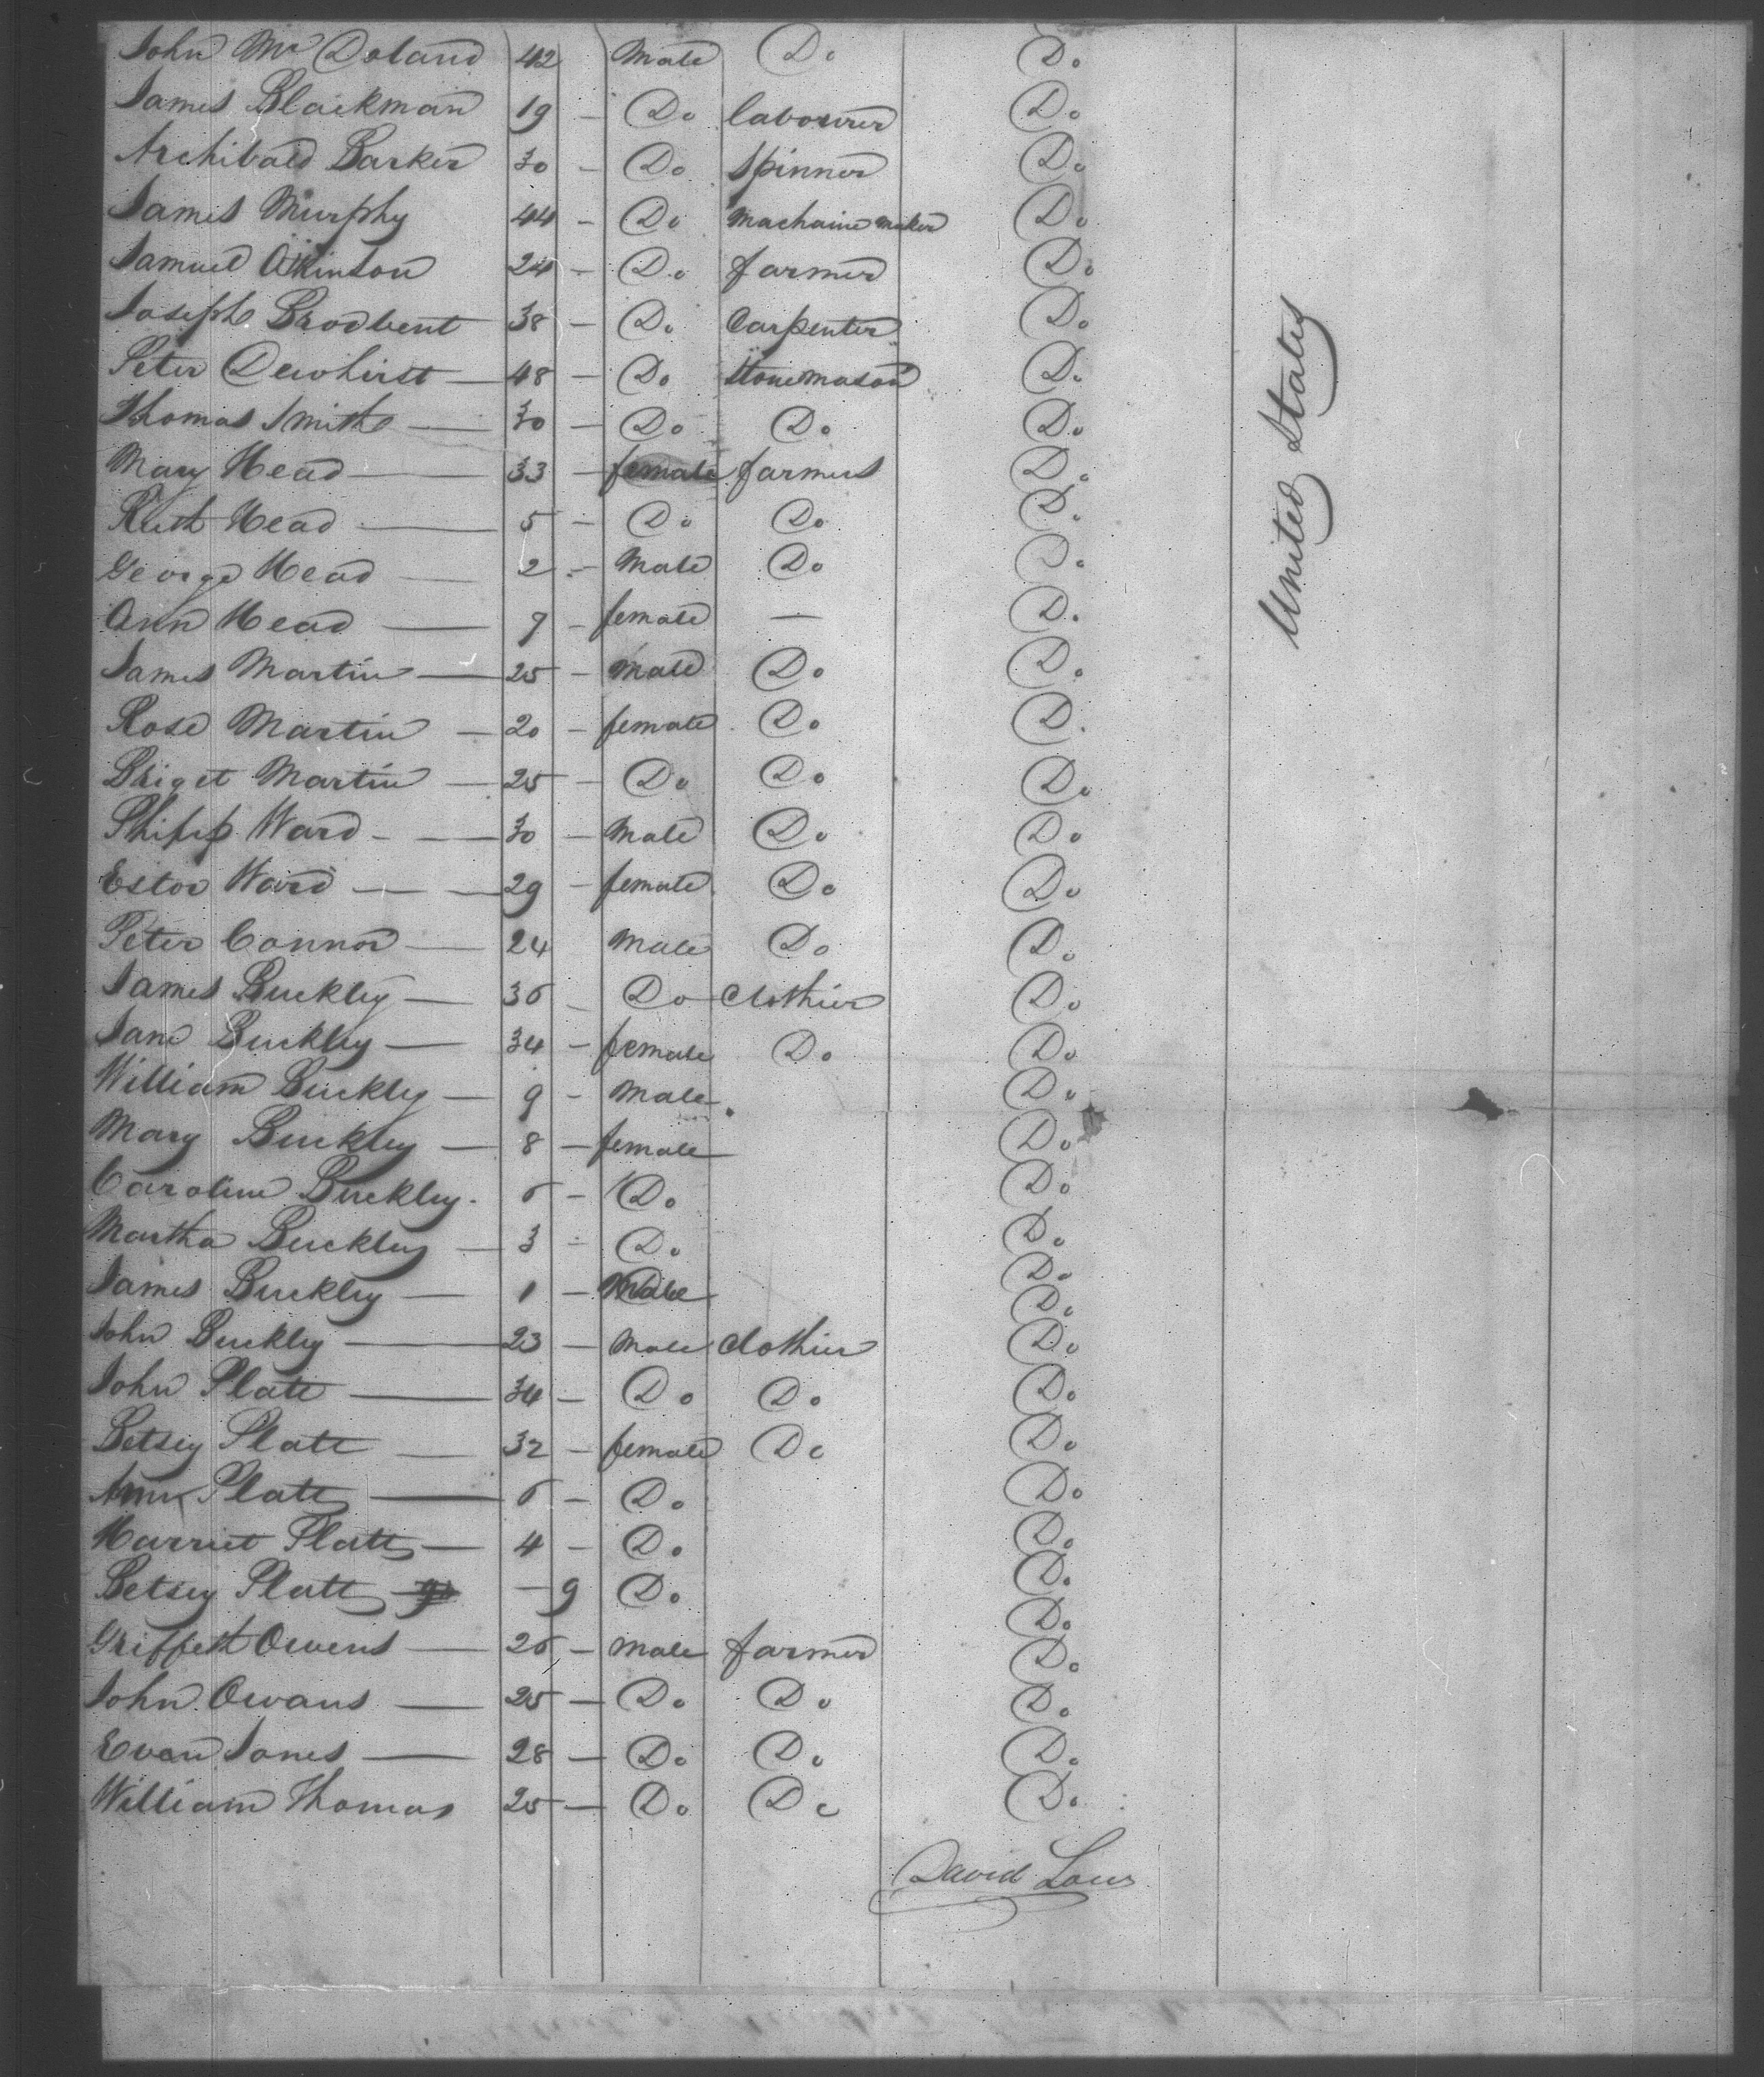 John McDoland 42 Male Do Do
James Blackman 19 - Do labourer Do
Archibald Barker 30 - Do Spinner Do
James Murphy 44 - Do Machaine maker Do
Samuel Atkinson 24 - Do farmer Do
Joseph Brodbent 38 - Do Carpenter Do
Peter Dewhirst - 48 - Do Stonemason Do
Thomas Smith - 30 - Do Do Do
Mary Head - 33 - female farmers Do
Ruth Head - 5 - Do Do Do
George Head - 2 - Male Do Do
Ann Head - 9 - female - Do
James Martin - 25 - Male Do Do
Rose Martin - 20 - female Do Do
Briget Martin - 25 - Do Do Do
Philip Ward - 30 - Male Do Do
Estor Ward - 29 - female Do Do
Peter Connor - 24 Male Do Do
James Buckley - 36 - Do Clothier Do
Jane Buckley - 34 - female Do Do
William Buckley - 9 - Male Do
Mary Buckley - 8 - female Do
Caroline Buckley - 6 - Do Do
Martha Buckley - 3 - Do Do
James Buckley - 1 - Male Do
Do
John Buckley - 23 - Male Clothier Do
John Platt - 34 - Do Do Do
Betsey Platt - 32 - female Do Do
Ann Platt - 6 - Do Do
Harriet Platt - 4 - Do Do
Betsey Platt - 9 Do Do
Do
Griffeth Owens - 26 - Male farmer Do
John Owans - 25 - Do Do Do
Evan Jones - 28 - Do Do Do
William Thomas 25 - Do Do Do
United States
David Low